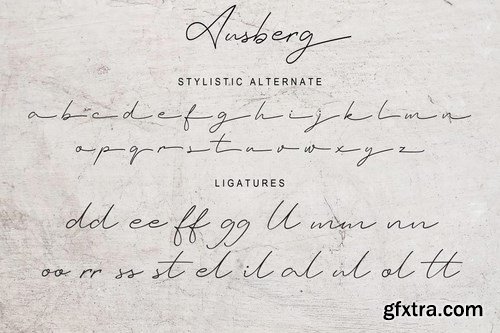 Ausberg
STYLISTIC ALTERNATE
a b c d e f g h i j k l m n
o p q r s t u v w x y z
LIGATURES
dd ee ff gg ll mm nn
oo rr ss st el il al ul ol tt
gfxtra.com